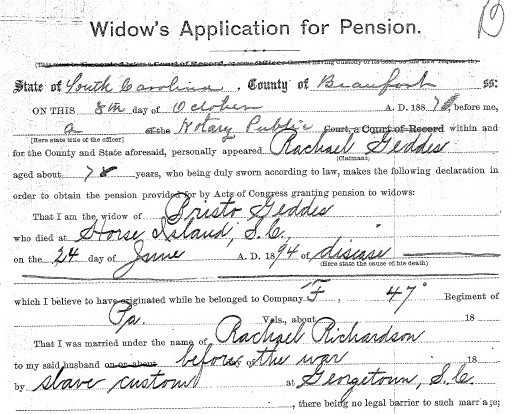 Widow's Application for Pension.
State of South Carolina, County of Beaufort ss:
ON THIS 8th day of October A. D. 188 before me,
a of the Notary Public Court, a Court of Record within and
[Here state title of the officer]
for the County and State aforesaid, personally appeared Rachael Geddes
(Claimant)
aged about years, who being duly sworn according to law, makes the following declaration in
order to obtain the pension provided for by Acts of Congress granting pension to widows:
That I am the widow of Bristo Geddes
who died at Horse Island, S.C. "
on the 24 day of June A. D. 1894 of disease
(Here state the cause of his death)
which I believe to have originated while he belonged to Company F, 47" Regiment of
Vols., about 18
That I was married under the name of Rachael Richardson
to my said husband on or about before the war 18
by slave custom at Georgetown, S.C.
, there being no legal barrier to such marriage;